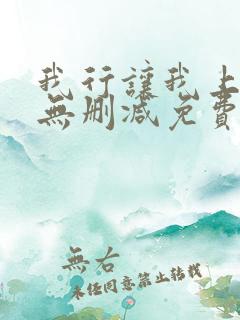 我行讓我上
無刪減免費
無右
未經同意禁止轉載